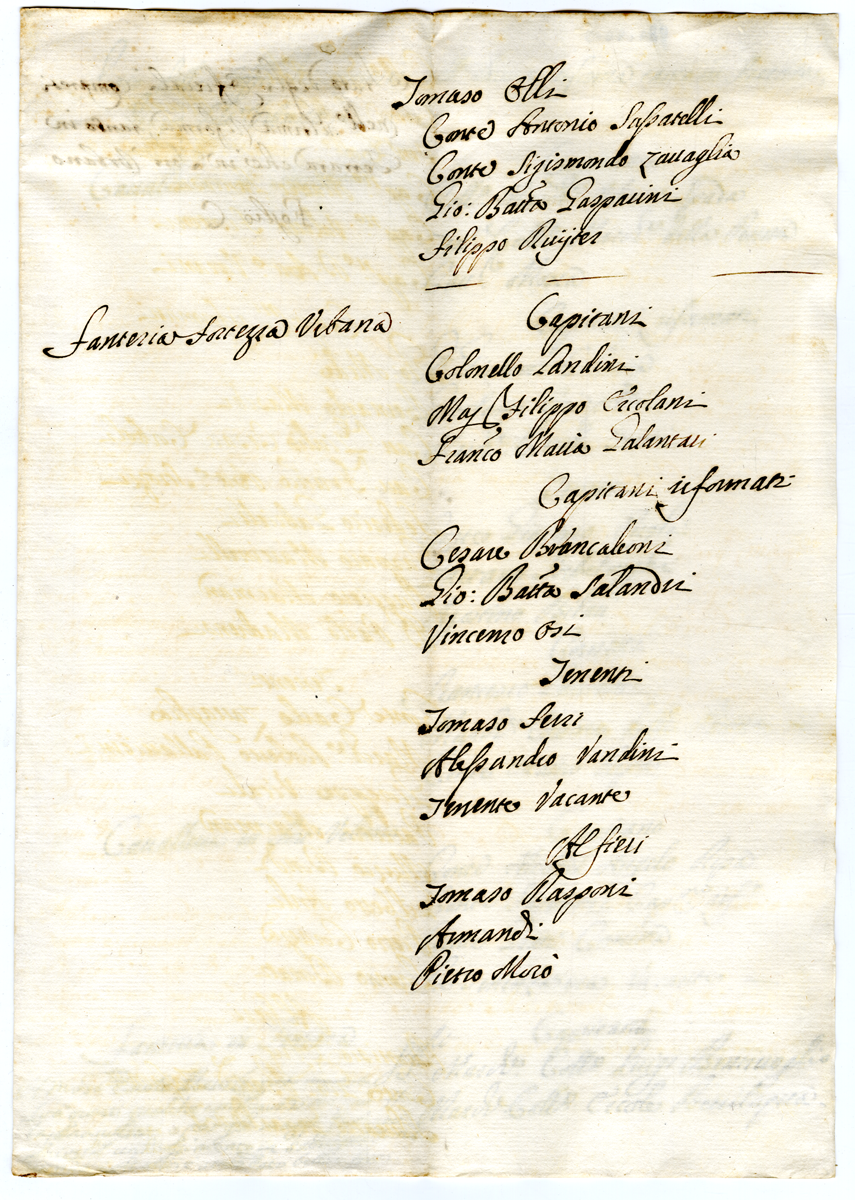 Tomaso Olli
Conte Antonio Sassatelli
Conte Sigismondo Zavaglia
Gio: Batta Gasparini
Filippo Ruijter
Fanteria Fortezza Urbana
Capitani
Colonello Landini
Mag. Filippo Ercolani
Franco Maria Galantari
Capitani riformati
Cesare Brancaleoni
Gio: Batta Salandri
Vincenzo Osi
Tenenti
Tomaso Ferri
Alessandro Vandini
Tenente Vacante
Alfieri
Tomaso Rasponi
Armandi
Pietro Morò